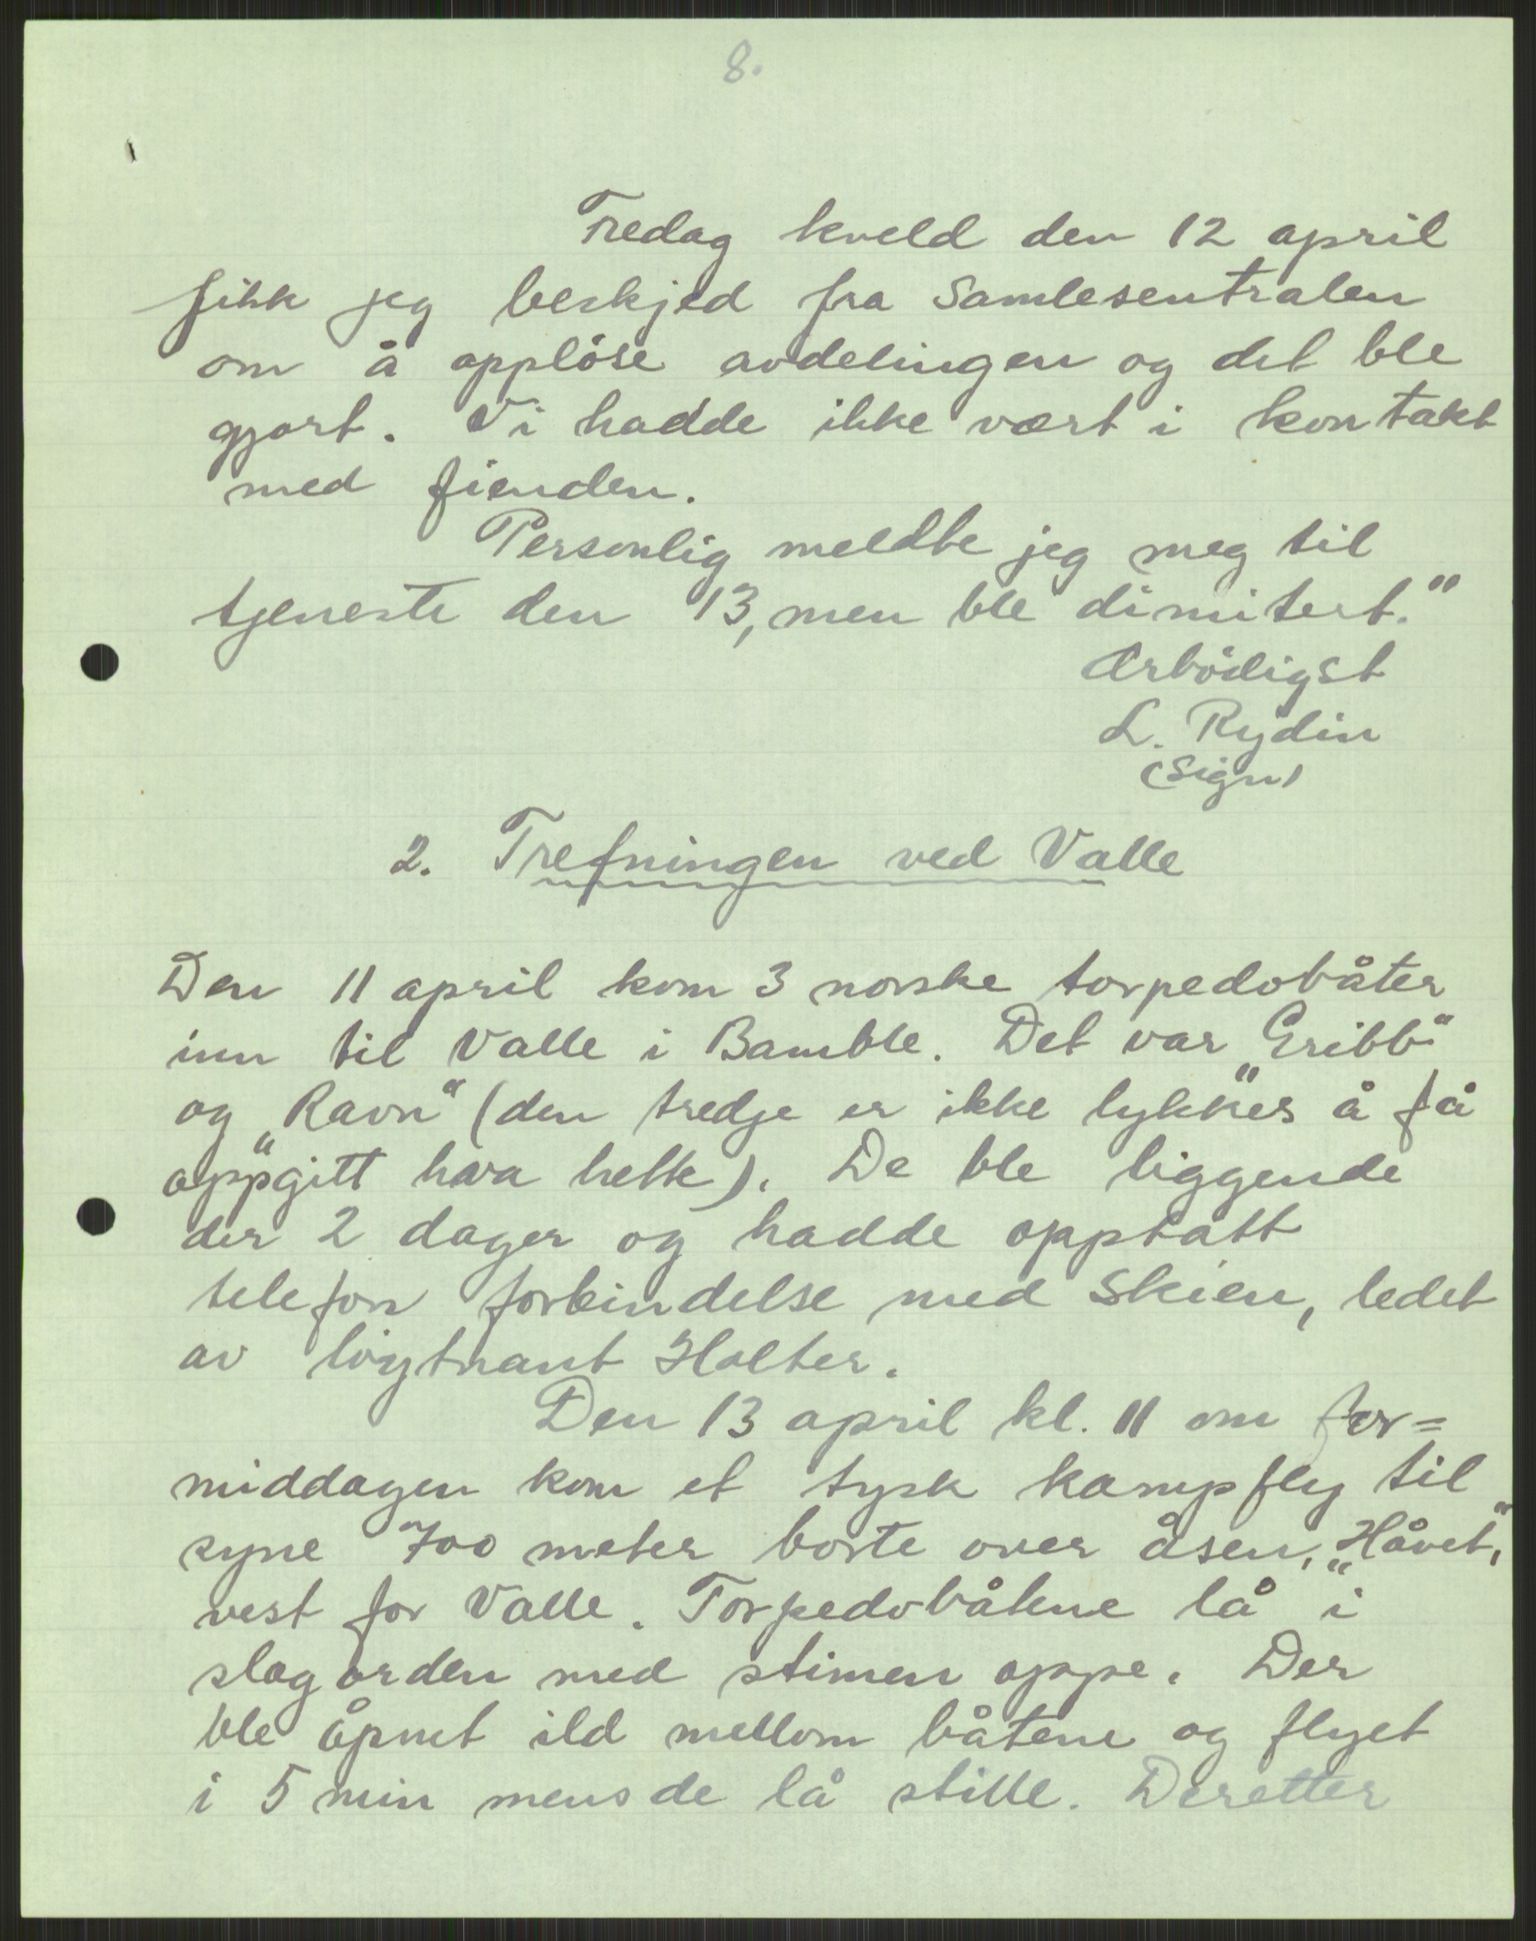 8.
Fredag kveld den 12 april
fikk jeg beskjed fra Samlesentralen
om å oppløse avdelingen og det ble
gjort. Vi hadde ikke vært i kontakt
med fienden.
Personlig meldte jeg meg til
tjeneste den 13, men ble dimitert."
Ærbødigst
L. Rydin
(Sign)
2. Trefningen ved Valle
Den 11 april kom 3 norske torpedobåter
inn til Valle i Bamble. Det var „Gribb"
og „Ravn" (den tredje er ikke lykkes å få
oppgitt hva hette). De ble liggende
der 2 dager og hadde opptatt
telefon forbindelse med Skien, ledet
av løytnant Holter.
Den 13 april kl. 11 om for=
middagen kom et tysk kampfly til
syne 700 meter borte over åsen, „Håvet",
vest for Valle. Torpedobåtene lå i
slagorden med stimen oppe. Der
ble åpnet ild mellom båtene og flyet
i 5 min mens de lå stille. Deretter